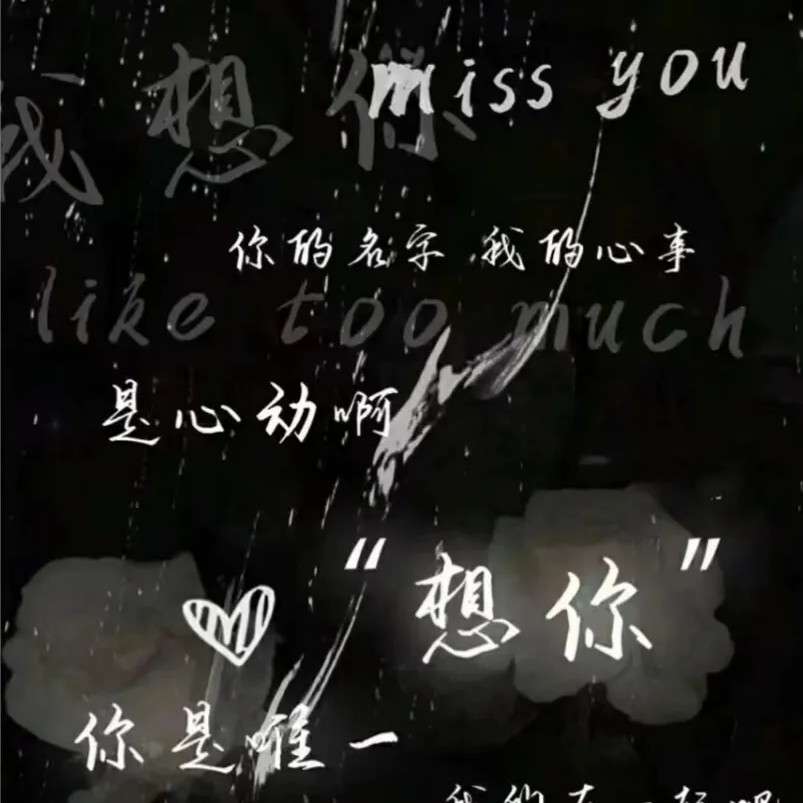 miss you
我想你
你的名字 我的心事
like too much
是心动啊
“想你”
你是唯一